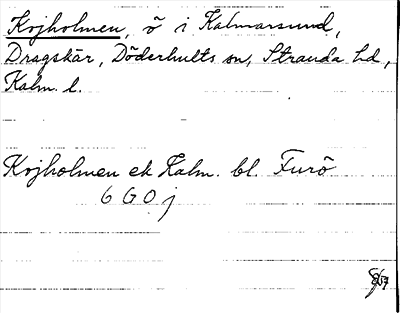 Kojholmen, ö i Kalmarsund,
Dragskär, Döderhults sn, Stranda hd,
Kalm. l.
Kojholmen ek Kalm. bl. Furö
6 G 0 j